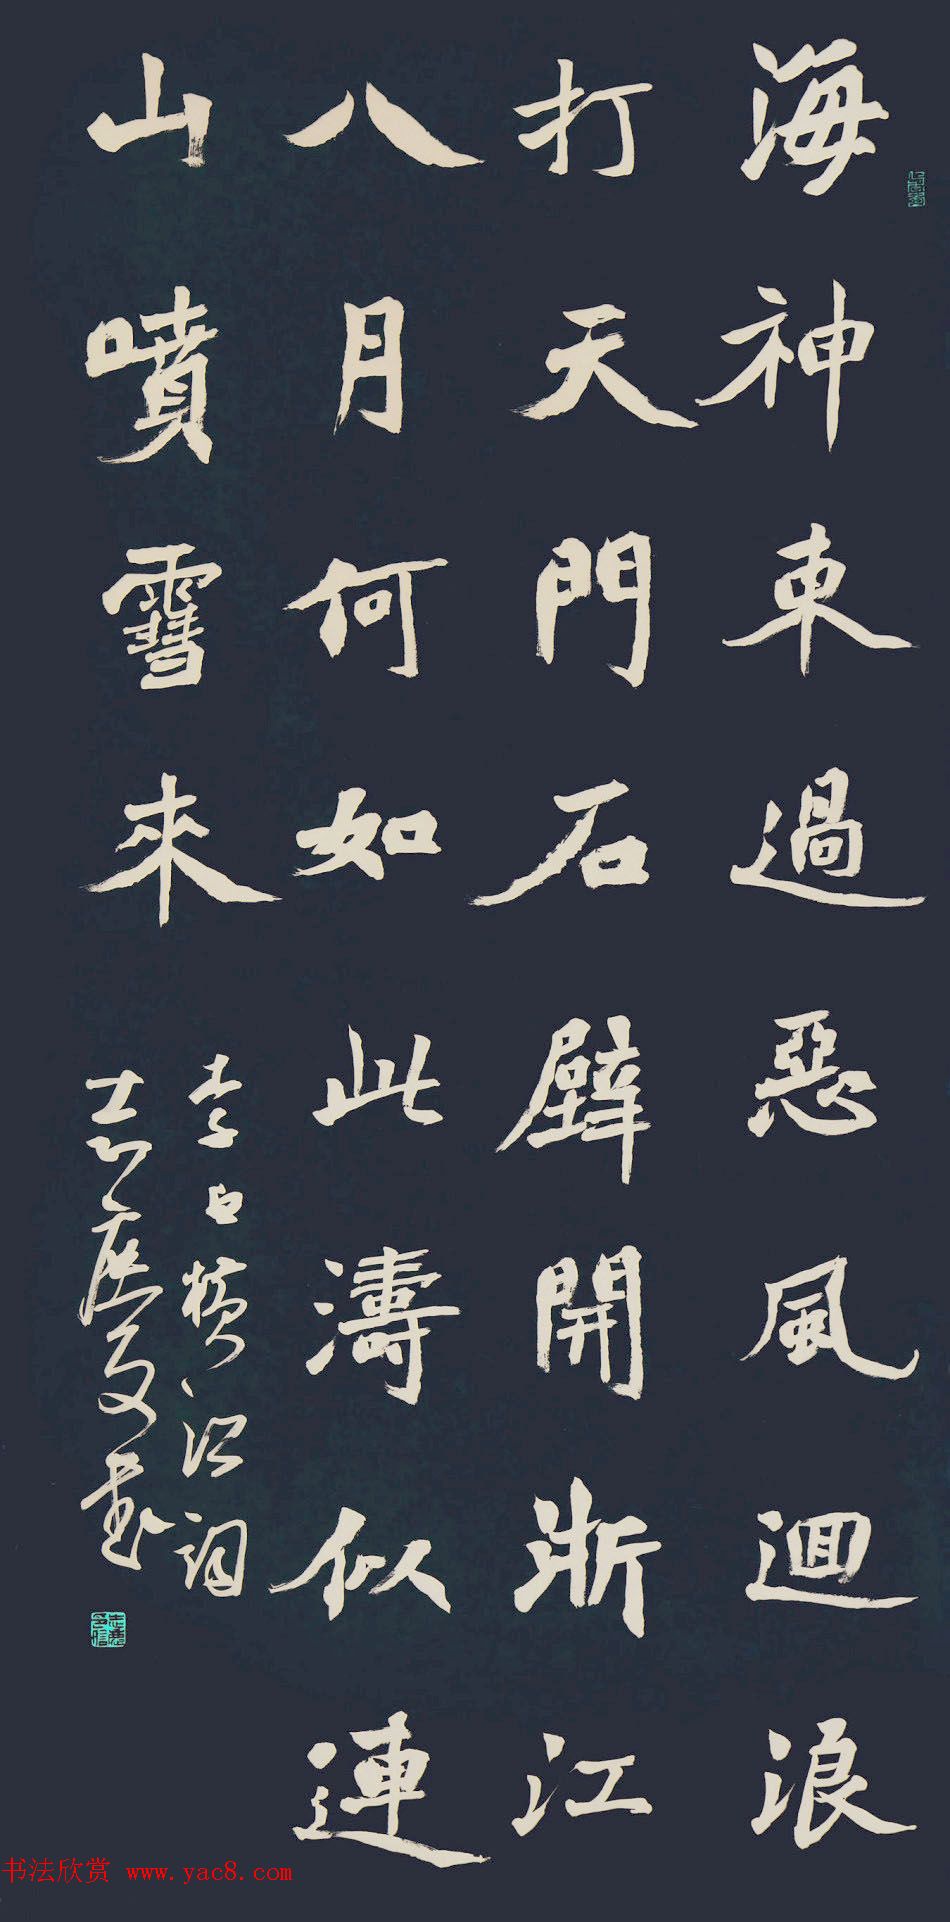 海神東過惡風迴浪
打天門石壁開浙江
八月何如此濤似連
山噴雪來
李白橫江詞
志 書
书法欣赏 www.yac8.com